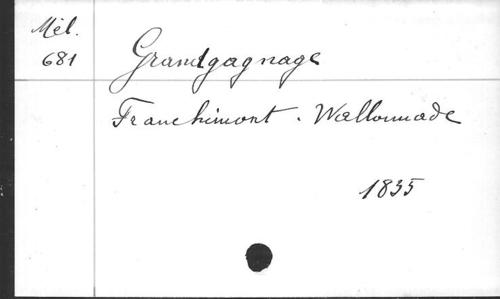 Mél.
681
Grandgagnage
Franchimont. Wallonnade
1835